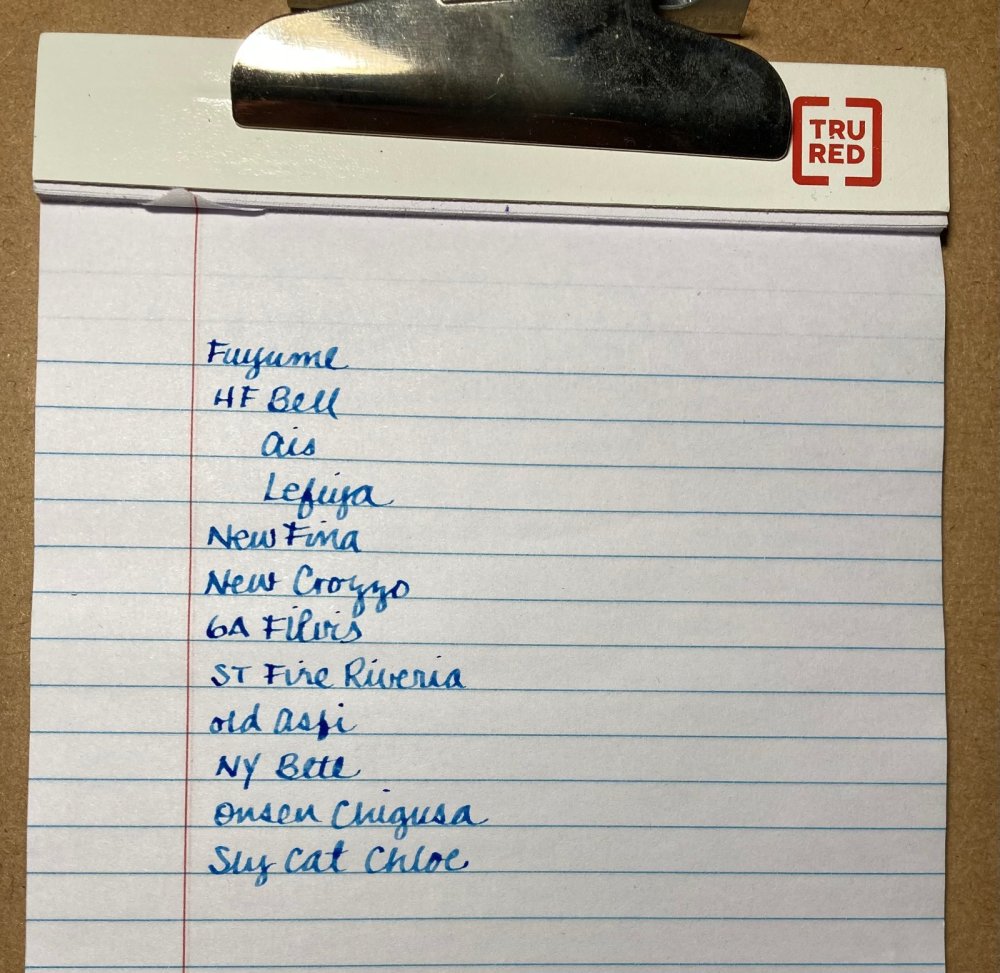 TRU
RED
Fuyume
HF Bell
Ais
Lefiya
New Fina
New Crozzo
6A Filvis
ST Fire Riveria
old Asfi
NY Bete
Onsen Chigusa
Sly Cat Chloe